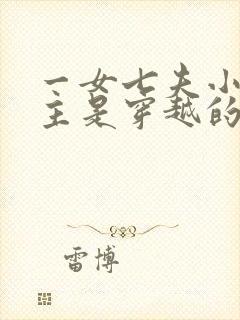 一女七夫小
主是穿越的
雷博